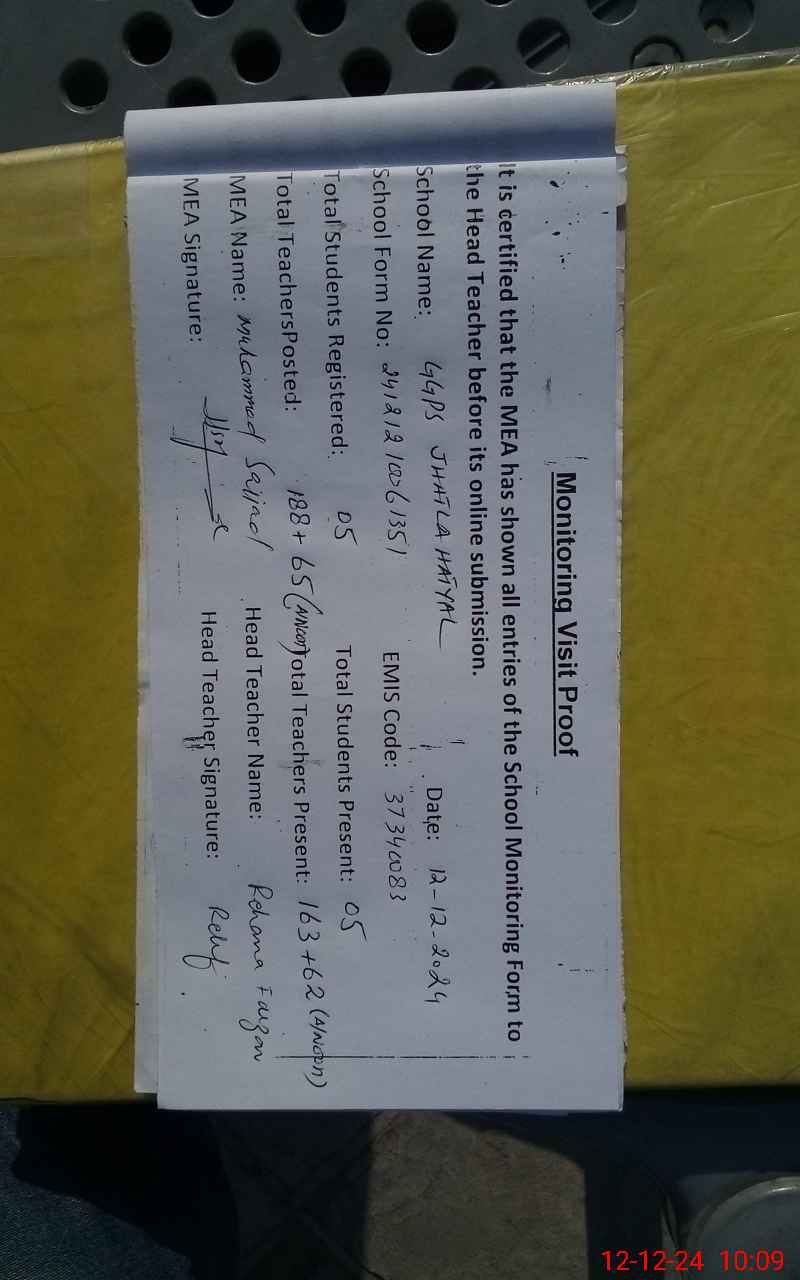 Monitoring Visit Proof
It is certified that the MEA has shown all entries of the School Monitoring Form to
the Head Teacher before its online submission.
School Name: GGPS JHATLA HATYAL Date: 12-12-2024
School Form No: 241212 10061351 EMIS Code: 37340083
Total Students Registered: 05 Total Students Present: 05
Total TeachersPosted: 188+65(A/Noon) Total Teachers Present: 163+62(A/Noon)
MEA Name: Muhammad Sajjad Head Teacher Name: Rehana Faizan
MEA Signature: Head Teacher Signature:
12-12-24 10:09